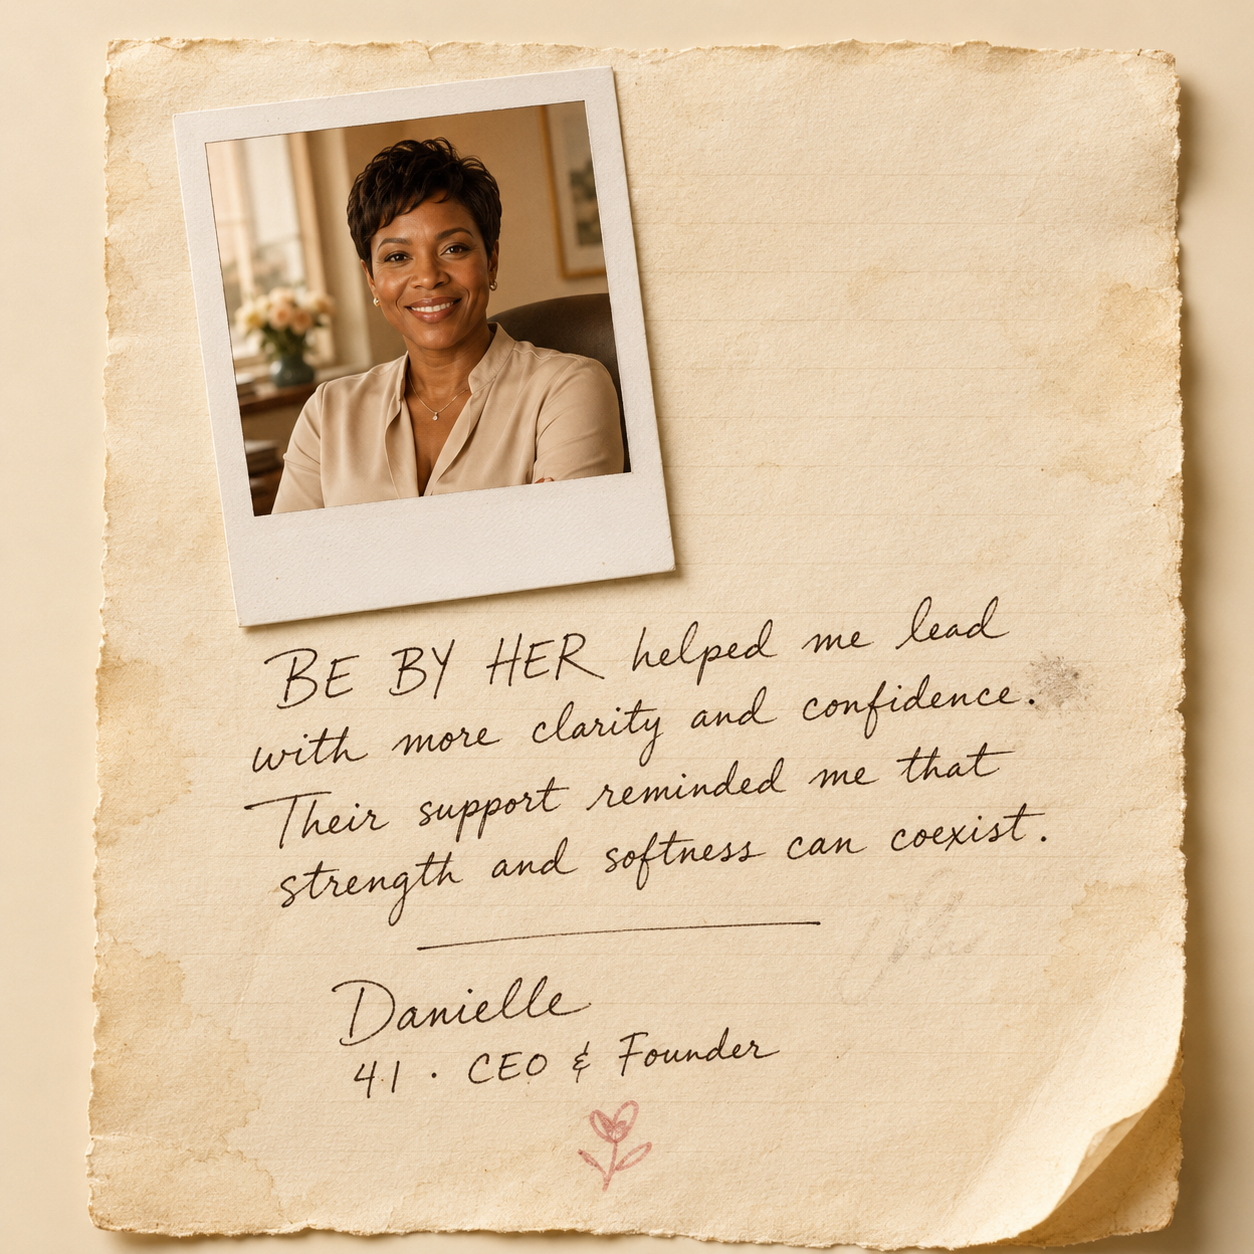 BE BY HER helped me lead
with more clarity and confidence.
Their support reminded me that
strength and softness can coexist.
Danielle
41 · CEO & Founder